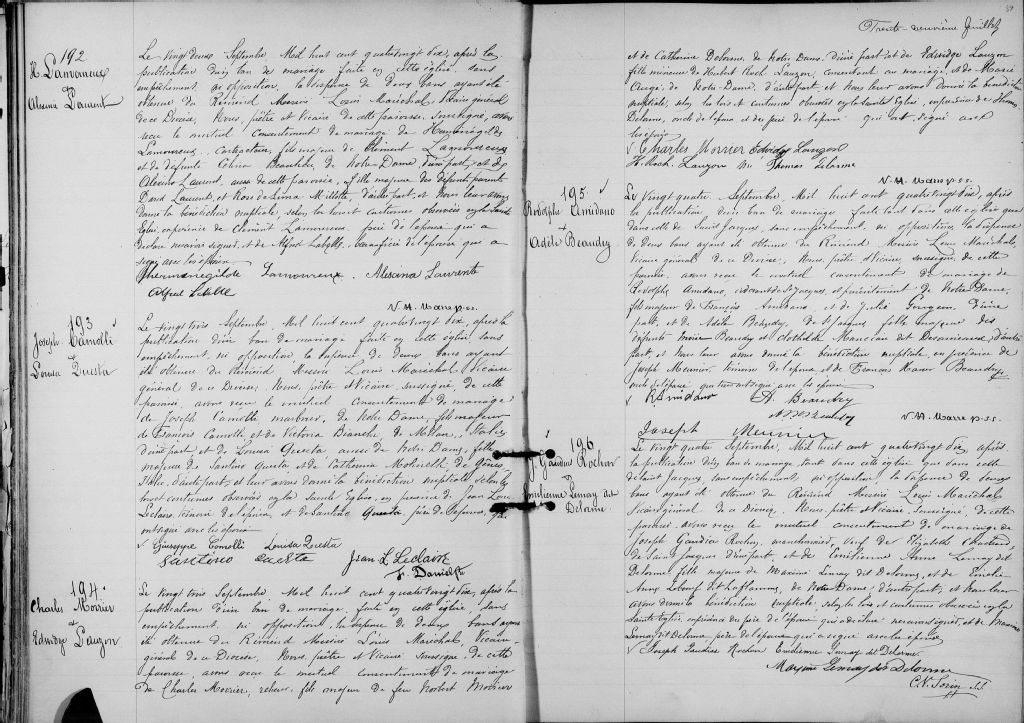 192
H. Lamoureux
&
Alexina Laurent
Le vingt deux Septembre Mil huit cent quatrevingt dix, après la
publication d'un ban de mariage faite en cette église, sans
empêchement ni opposition, la dispense de deux bans ayant été
obtenue du Révérend Messire Louis Maréchal, Vicaire général
de ce Diocèse, Nous, prêtre et Vicaire de cette paroisse, Soussigné, avons
reçu le mutuel consentement de mariage de Herménégilde
Lamoureux, Contracteur, fils majeur de Clément Lamoureux
et de défunte Célina Beauthier de Notre-Dame d'une part, et de
Alexina Laurent, aussi de cette paroisse, fille majeure des défunts parents
David Laurent, et Rose de Lima Millette, d'autre part, et Nous leur avons
donné la bénédiction nuptiale, selon les lois et coutumes observées en la Sainte
Église, en présence de Clément Lamoureux, père de l'époux qui a
déclaré ne savoir signer, et de Alfred Labelle, beau-frère de l'épouse qui a
signé avec les époux
Hermenegilde Lamoureux. Alexina Laurente
Alfred Labelle
N. H. Marre p.s.s.
193
Joseph Camolli
&
Louisa Questa
Le vingt trois Septembre, Mil huit cent quatrevingt dix, après la
publication d'un ban de mariage faite en cette église sans
empêchement, ni opposition, la dispense de deux bans ayant
été obtenue du Révérend Messire Louis Maréchal Vicaire
général de ce Diocèse, Nous, prêtre et Vicaire, soussigné, de cette
paroisse, avons reçu le mutuel consentement de mariage
de Joseph Camolli marbrier, de Notre Dame, fils majeur
de François Camolli, et de Victoria Bianchi, de Milan, Italie
d'une part, et de Louisa Questa aussi de Notre Dame, fille
majeure de Santino Questa et de Catherina Molinelli de Gênes,
Italie, d'autre part, et leur avons donné la bénédiction nuptiale selon les
lois et coutumes observées en la Sainte Église, en présence de Jean Louis
Leclaire, témoin de l'époux, et de Santino Questa père de l'épouse, qui
ont signé avec les époux
Giuseppe Comolli Louisa Questa
Santino Cuesta Jean L Leclaire
F. Danielph
194
Charles Morrier
&
Edwidge Lauzon
Le vingt trois Septembre, Mil huit cent quatrevingt dix, après la
publication d'un ban de mariage, faite en cette église, sans
empêchement, ni opposition, la dispense de deux bans ayant
été obtenue du Révérend Messire Louis Maréchal Vicaire
général de ce Diocèse, Nous, prêtre et Vicaire soussigné, de cette
paroisse, avons reçu le mutuel consentement de mariage
de Charles Morrier, relieur, fils majeur de feu Norbert Morrier
Trente-neuvième Feuillet
et de Catherine Delorme, de Notre Dame, d'une part et de Edwidge Lauzon
fille mineure de Hubert Roch Lauzon, consentant au mariage, et de Marie
Augé, de Notre-Dame, d'autre part, et Nous leur avons donné la bénédiction
nuptiale, selon les lois et coutumes observées en la Sainte Église, en présence de Thomas
Delorme, oncle de l'époux et du père de l'épouse qui ont signé avec
les époux
Charles Morrier Edwidge Lauzon
H Roch Lauzon Thomas delorme
N. H. Marre p.s.s.
195
Rodolphe Amidano
&
Adèle Beaudry
Le Vingt quatre Septembre, Mil huit cent quatrevingt dix, après
la publication d'un ban de mariage faite tant dans cette église que
dans celle de Saint Jacques, sans empêchement, ni opposition la dispense
de deux bans ayant été obtenue du Révérend Messire Louis Maréchal,
Vicaire général de ce Diocèse, Nous, prêtre et Vicaire, soussigné, de cette
paroisse, avons reçu le mutuel consentement de mariage de
Rodolphe Amidano, ci-devant de St Jacques, et présentement de Notre Dame,
fils majeur de François Amidano et de Julie Gingras d'une
part, et de Adèle Beaudry, de St Jacques, fille majeure des
défunts Beaudry et Clothilde d'autre
part, et Nous leur avons donné la bénédiction nuptiale, en présence de
Joseph Meunier, témoin de l'époux, et de François Xavier Beaudry,
de l'épouse qui tous ont signé avec les époux
R. Amidano A. Beaudry
Beaudry
Joseph Meunier
N. H. Marre p.s.s.
196
J. Gaudias Rochon
&
Emilienne Lemay dit
Delorme
Le vingt quatre Septembre, Mil huit cent quatrevingt dix, après
la publication d'un ban de mariage tant dans cette église que dans celle
de Saint Jacques, sans empêchement, ni opposition la dispense de deux
bans ayant été obtenue du Révérend Messire Louis Maréchal
Vicaire général de ce Diocèse, Nous, prêtre et Vicaire, soussigné, de cette
paroisse avons reçu le mutuel consentement de mariage de
Joseph Gaudias Rochon, marchand, veuf de Elizabeth
de Saint Jacques d'une part et de Emilienne Anne Lemay dit
Delorme fille majeure de Maxime Lemay dit Delorme, et de Emélie
Anne Leboeuf dit Laflamme, de Notre Dame d'autre part, et leur
avons donné la bénédiction nuptiale, selon les lois et coutumes observées en la
Sainte Église, en présence du père de l'époux qui a déclaré ne savoir signer, et de Maxime
Lemay dit Delorme, père de l'épouse qui a signé avec les époux
Joseph Gaudias Rochon Emilienne Lemay dit Delorme
Maxime Lemay dit Delorme